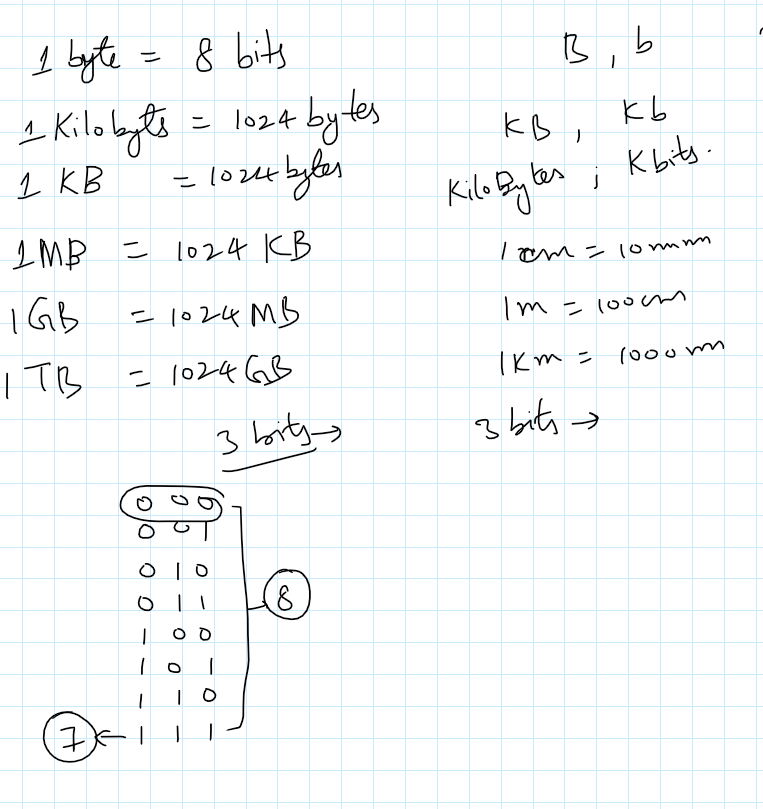 1 byte = 8 bits
1 Kilobyts = 1024 bytes
1 KB = 1024 bytes
1MB = 1024 KB
1 GB = 1024 MB
1 TB = 1024 GB
3 bits →
0 0 0
0 0 1
0 1 0
0 1 1
1 0 0
1 0 1
1 1 0
7 ← 1 1 1
8
B, b
KB, Kb
KiloBytes ; Kbits.
1 cm = 10mm
1m = 100cm
1Km = 1000 m
3 bits →